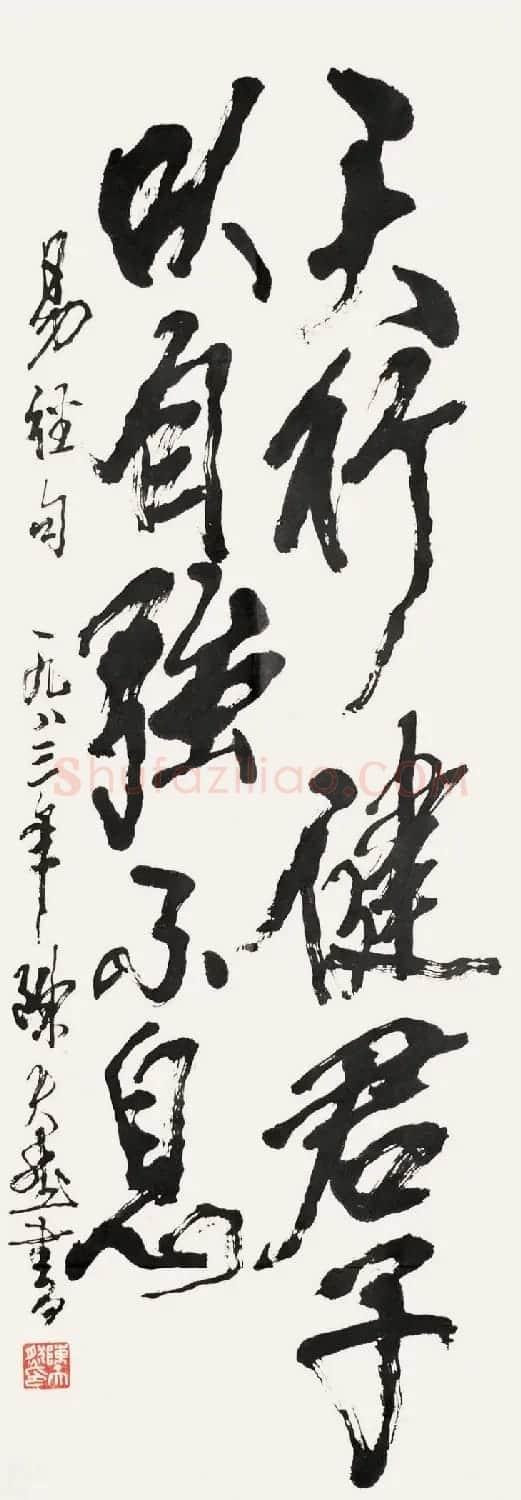 天行健君子
以自强不息
易经句 一九八三年 陈大羽书
Shufaziliao.COM